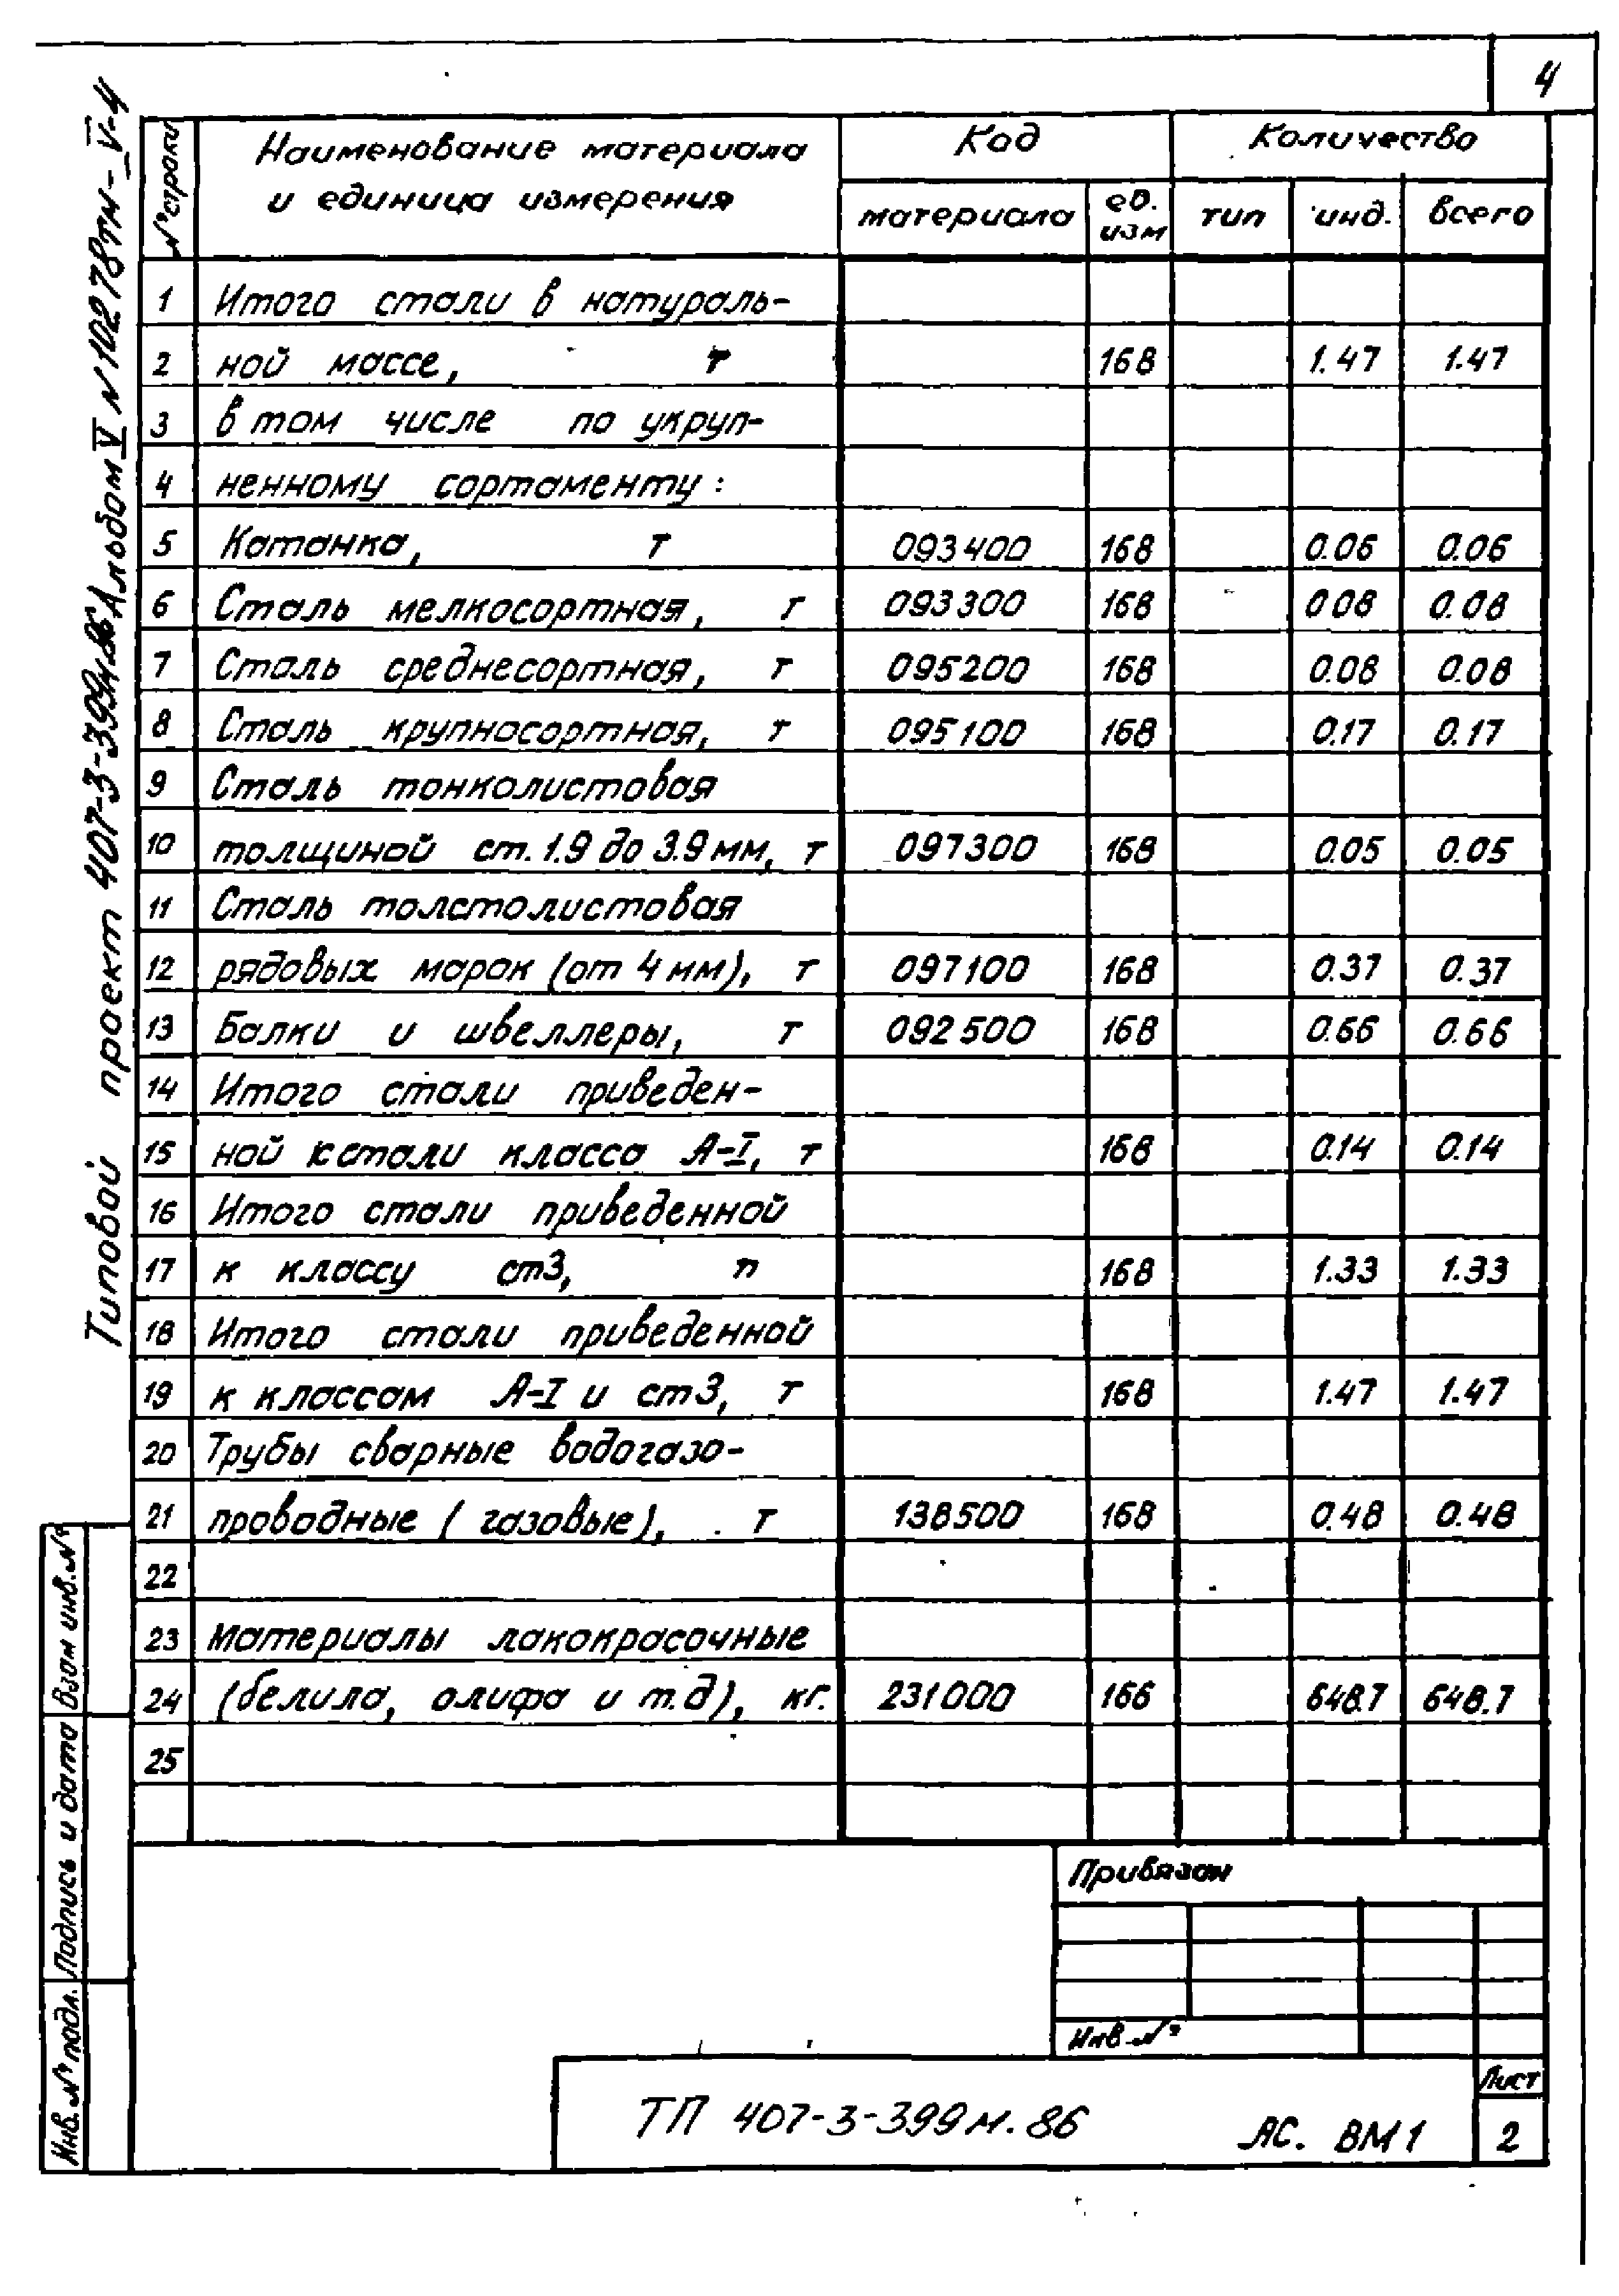 4
Типовой проект 407-3-399м.86 Альбом V N 10278тм-V-4
N° строки
Наименование материала
и единица измерения
Код
Количество
материала
ед.
изм
тип
инд.
всего
1 Итого стали в натураль-
2 ной массе, т 168 1.47 1.47
3 в том числе по укруп-
4 ненному сортаменту:
5 Катанка, т 093400 168 0.06 0.06
6 Сталь мелкосортная, т 093300 168 0.08 0.08
7 Сталь среднесортная, т 095200 168 0.08 0.08
8 Сталь крупносортная, т 095100 168 0.17 0.17
9 Сталь тонколистовая
10 толщиной ст. 1.9 до 3.9 мм, т 097300 168 0.05 0.05
11 Сталь толстолистовая
12 рядовых марок (от 4 мм), т 097100 168 0.37 0.37
13 Балки и швеллеры, т 092500 168 0.66 0.66
14 Итого стали приведен-
15 ной к стали класса А-I, т 168 0.14 0.14
16 Итого стали приведенной
17 к классу ст3, т 168 1.33 1.33
18 Итого стали приведенной
19 к классам А-I и ст3, т 168 1.47 1.47
20 Трубы сварные водогазо-
21 проводные (газовые), т 138500 168 0.48 0.48
22
23 Материалы лакокрасочные
24 (белила, олифа и т.д), кг. 231000 166 648.7 648.7
25
Взам инв. N°
Подпись и дата
Инв. N° подл.
Привязан
Инв. N°
ТП 407-3-399м.86
АС. ВМ1
Лист
2